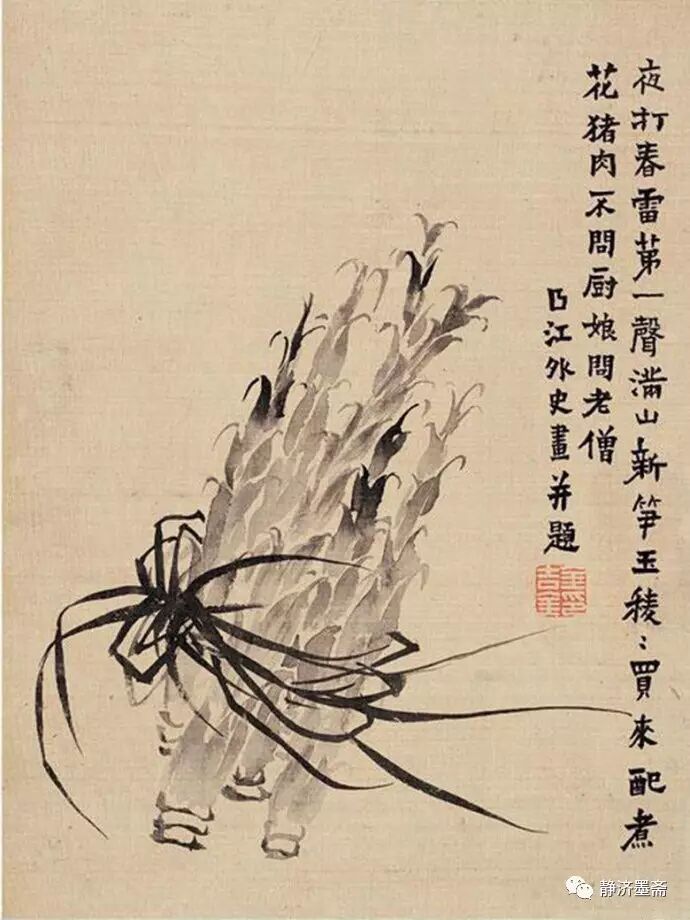 夜打春雷苐一聲滿山新笋玉稜：買來配煮
花猪肉不問厨娘問老僧
曲江外史畫并題
静济墨斋